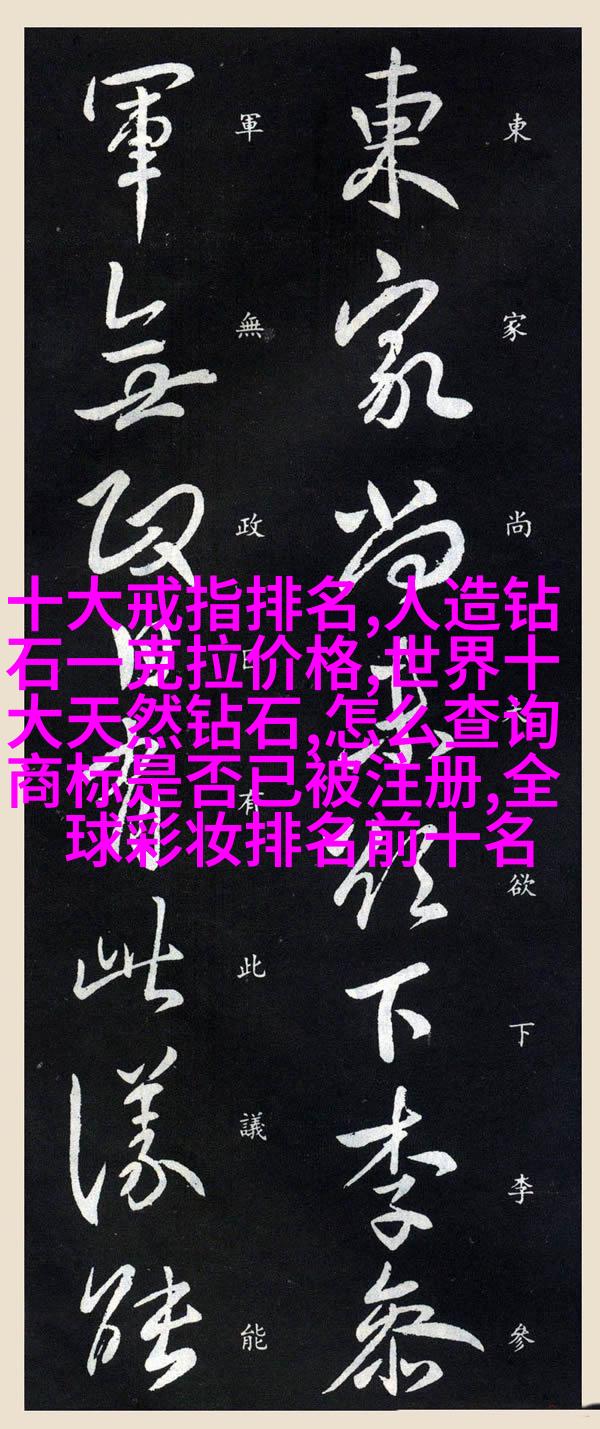 十大戒指排名,人造钻
石一克拉价格,世界十
大天然钻石,怎么查询
商标是否已被注册,全
球彩妆排名前十名
東家尚欲下李參
東家尚欲下李參
軍無政日有此議能
軍無政日有此議能